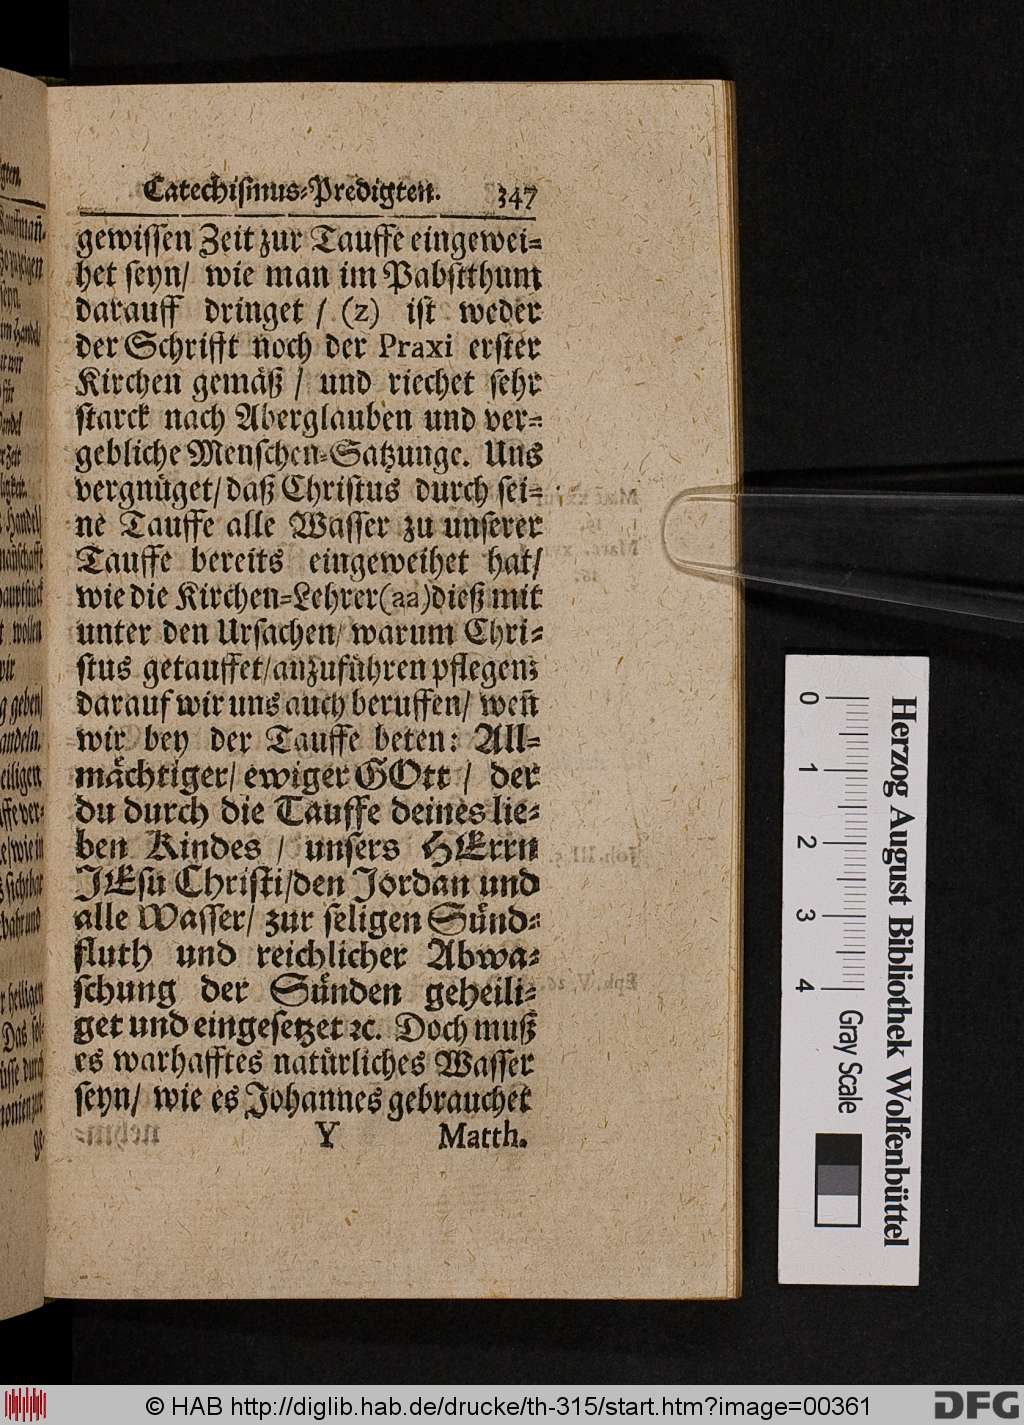 Catechismus-Predigten. 347
gewissen Zeit zur Tauffe eingewei-
het seyn/ wie man im Pabstthum
darauff dringet / (z) ist weder
der Schrifft noch der Praxi erster
Kirchen gemäß / und riechet sehr
starck nach Aberglauben und ver-
gebliche Menschen-Satzunge. Uns
vergnüget/ daß Christus durch sei-
ne Tauffe alle Wasser zu unserer
Tauffe bereits eingeweihet hat/
wie die Kirchen-Lehrer(aa)dieß mit
unter den Ursachen/ warum Chri-
stus getauffet/anzuführen pflegen;
darauf wir uns auch beruffen/ weñ
wir bey der Tauffe beten: All-
mächtiger/ ewiger GOtt / der
du durch die Tauffe deines lie-
ben Kindes / unsers HErrn
JEsu Christi/den Jordan und
alle Wasser/ zur seligen Sünd-
fluth und reichlicher Abwa-
schung der Sünden geheili-
get und eingesetzet ꝛc. Doch muß
es warhafftes natürliches Wasser
seyn/ wie es Johannes gebrauchet
Y Matth.
0 1 2 3 4
Gray Scale
Herzog August Bibliothek Wolfenbüttel
© HAB http://diglib.hab.de/drucke/th-315/start.htm?image=00361
DFG